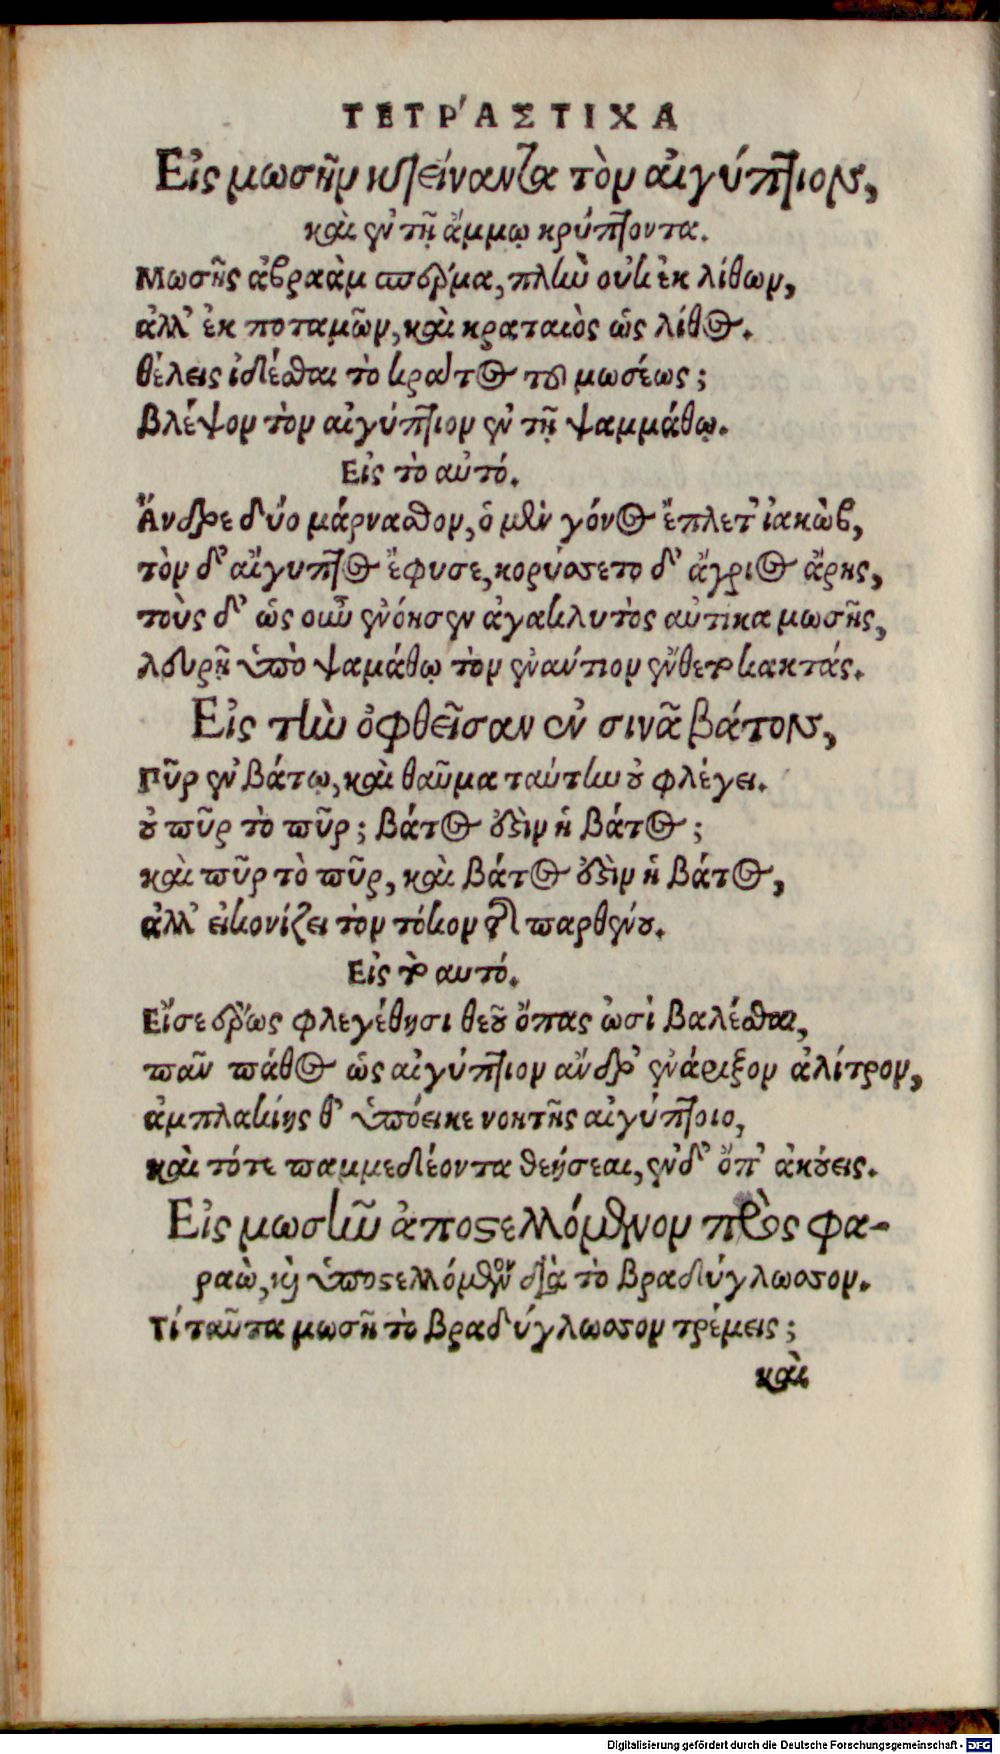 ΤΕΤΡΆΣΤΙΧΑ
Εἰς μωσῆν κτείναντα τὸν αἰγύπτιον,
καὶ ἐν τῇ ἄμμῳ κρύπτοντα.
Μωσῆς ἀβραὰμ σπέρμα, πλὴν οὐκ ἐκ λίθων,
ἀλλ' ἐκ ποταμῶν, καὶ κραταιὸς ὡς λίθος.
θέλεις ἰδέσθαι τὸ κράτος τοῦ μωσέως;
Βλέψον τὸν αἰγύπτιον ἐν τῇ ψαμμάθῳ.
Εἰς τὸ αὐτό.
Ἄνδρε δύο μάρνασθον, ὁ μὲν γόνος ἔπλετ' ἰακὼβ,
τὸν δ' αἴγυπτος ἔφυσε, κορύσσετο δ' ἄγριος ἄρης,
τοὺς δ' ὡς οὖν ἐνόησεν ἀγακλυτὸς αὐτίκα μωσῆς,
λουρῇ ὑπὸ ψαμάθῳ τὸν ἐναντίον ἔνθετο κακτάς.
Εἰς τὴν ὀφθεῖσαν ἐν σινᾶ βάτον,
Πῦρ ἐν βάτῳ, καὶ θαῦμα ταύτην οὐ φλέγει.
οὐ πῦρ τὸ πῦρ; βάτος οὐδὲν ἡ βάτος;
καὶ πῦρ τὸ πῦρ, καὶ βάτος ἐστὶν ἡ βάτος,
ἀλλ' εἰκονίζει τὸν τόκον τῆς παρθένου.
Εἰς τὸ αυτό.
Εἴσε ἔρως φλεγέθησι θεοῦ ὄπας ὠσὶ βαλέσθαι,
πᾶν πάθος ὡς αἰγύπτιον ἄνδρ' ἐνάριξον ἀλίτρον,
ἀμπλακίης θ' ὑπόεικε νοητῆς αἰγύπτοιο,
καὶ τότε παμμεδέοντα θεήσεαι, ἐνδ' ὄπ' ἀκούεις.
Εἰς μωσῆν ἀποστελλόμενον πρὸς φα-
ραὼ, καὶ ὑποστελλόμενον διὰ τὸ βραδύγλωσσον.
Τί ταῦτα μωσῆ τὸ βραδύγλωσσον τρέμεις;
καὶ
Digitalisierung gefördert durch die Deutsche Forschungsgemeinschaft - DFG